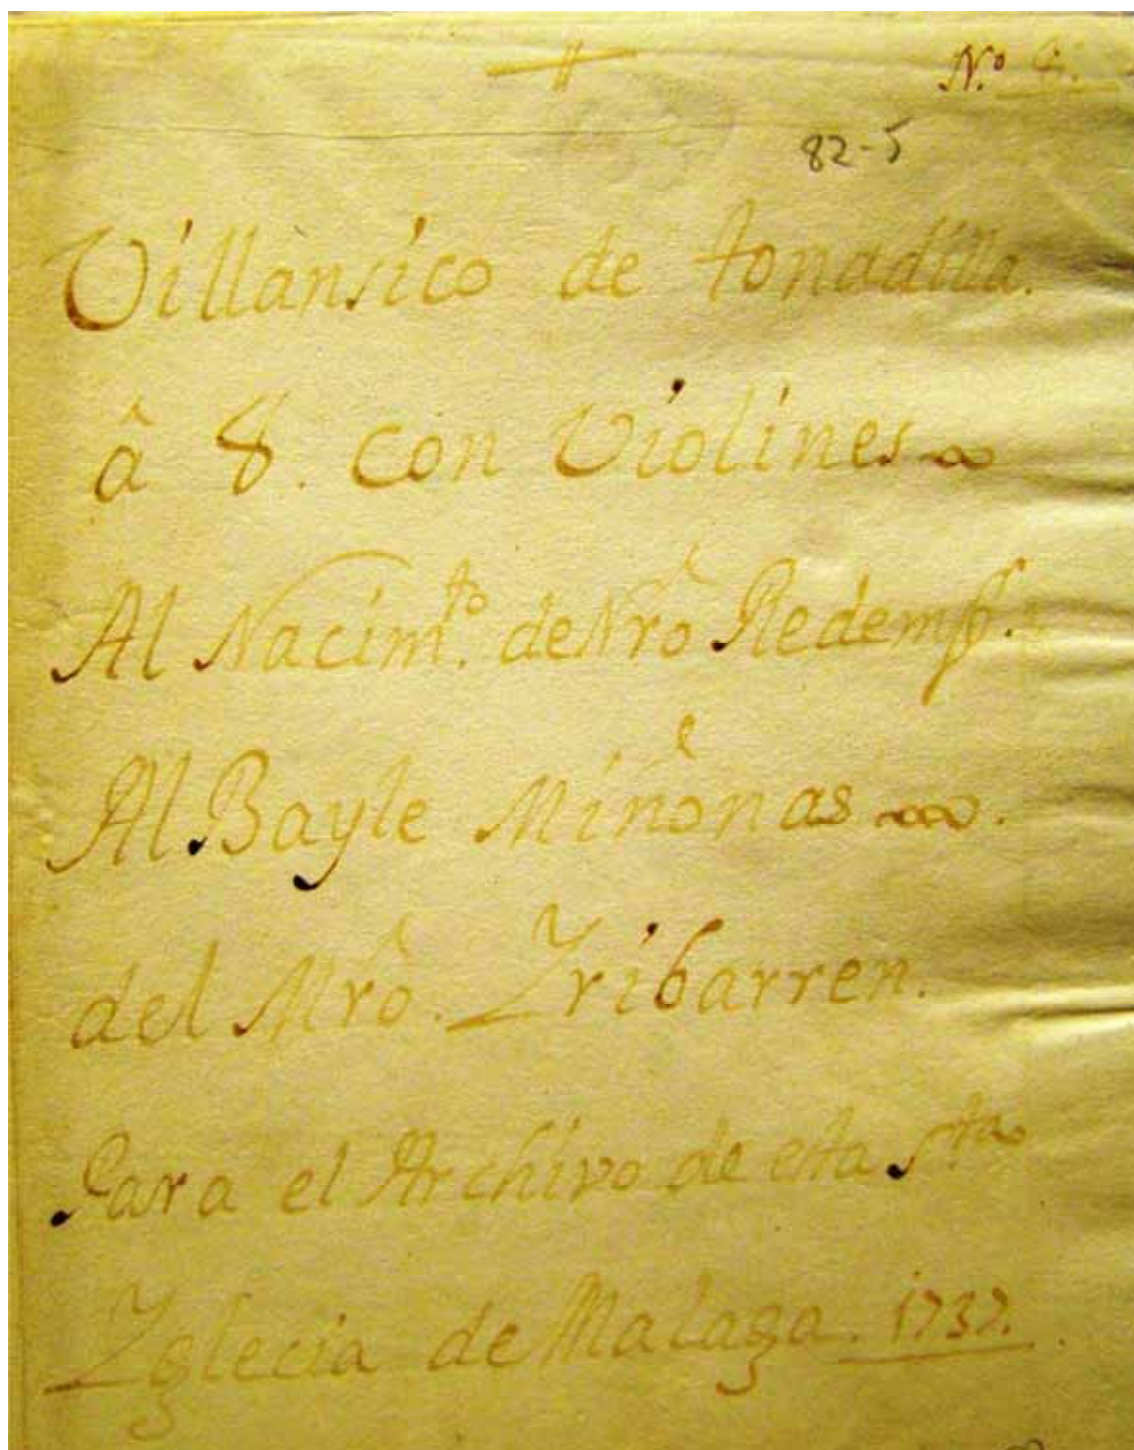 Nº 4.
82-5
Villansico de tonadilla.
â 8. con Violines
Al Nacim.to de Nrô Redemp.r
Al Bayle Miñonas
del Mrô. Yribarren.
Para el Archivo de esta Sta
Yglecia de Malaga. 1737.